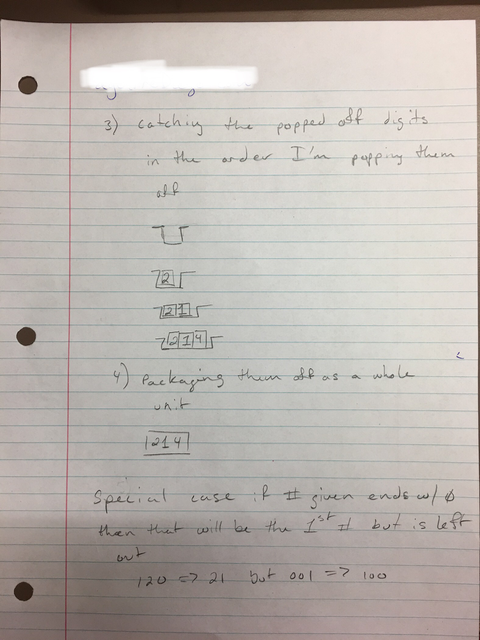 3) Catching the popped off digits
in the order I'm popping them
off
2
21
214
4) Packaging them off as a whole
unit
214
Special case if # given ends w/ ø
then that will be the 1st # but is left
out
120 => 21 but 001 => 100